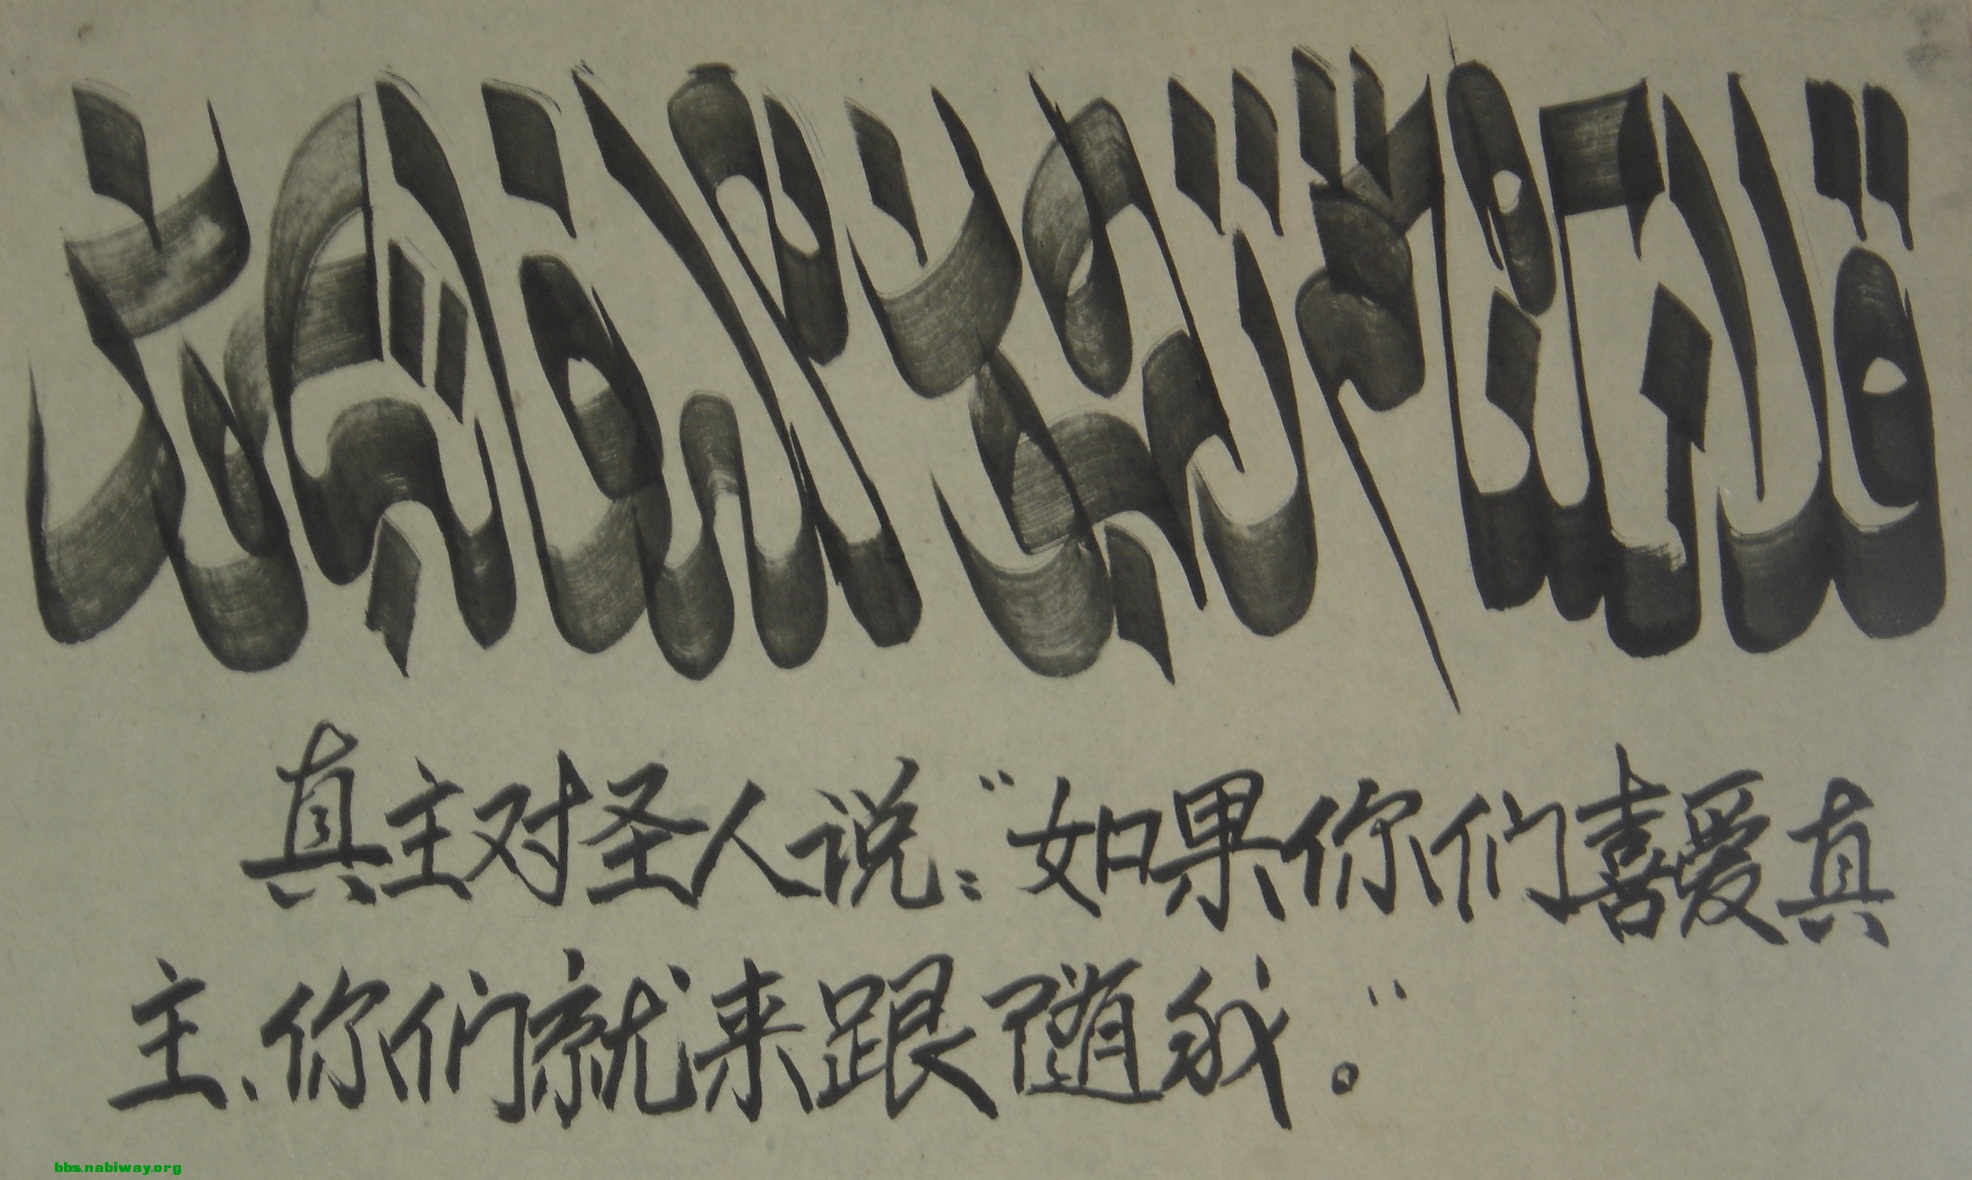 قل ان كنتم تحبون الله فاتبعوني
真主对圣人说:"如果你们喜爱真
主、你们就来跟随我。"
bbs.nabiway.org